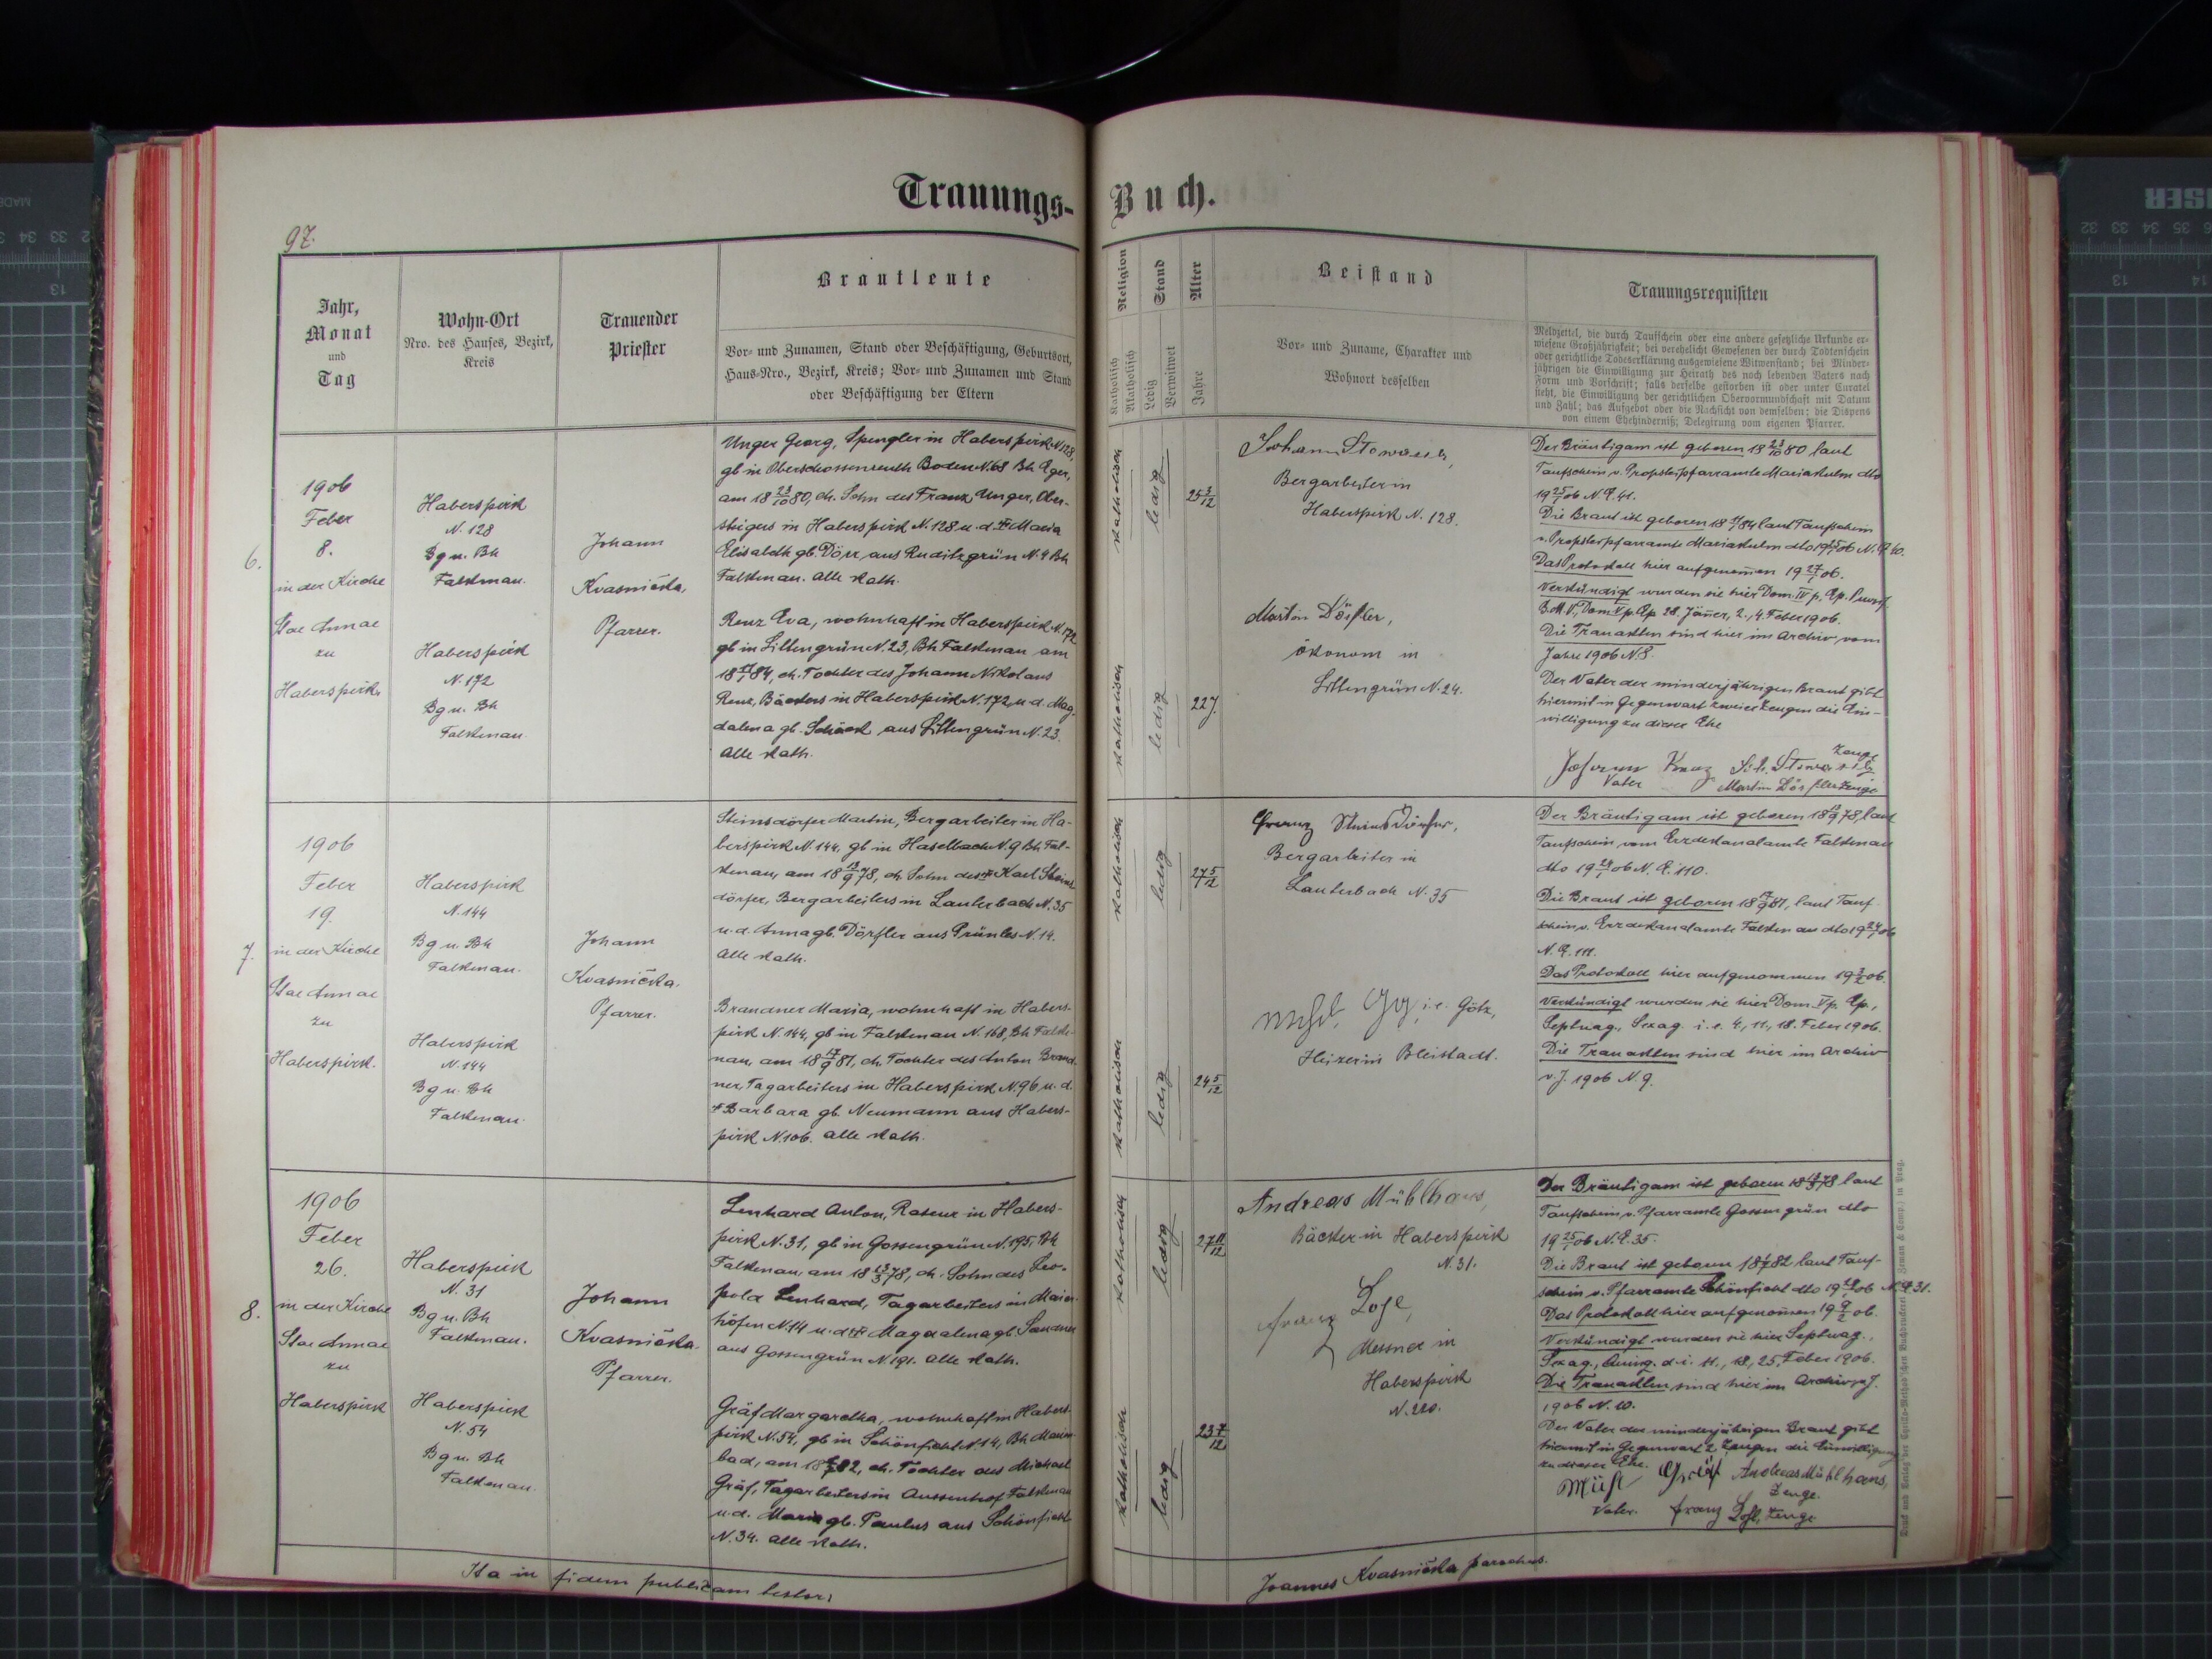 Trauungs-
Buch.
97.
Jahr,
Monat
und
Tag
Wohn-Ort
Nro. des Hauses, Bezirk,
Kreis
Trauender
Priester
Brautleute
Vor- und Zunamen, Stand oder Beschäftigung, Geburtsort,
Haus-Nro., Bezirk, Kreis; Vor- und Zunamen und Stand
oder Beschäftigung der Eltern
Religion
Katholisch
Akatholisch
Stand
Ledig
Verwitwet
Alter
Jahre
Beistand
Vor- und Zuname, Charakter und
Wohnort desselben
Trauungsrequisiten
Meldzettel, die durch Taufschein oder eine andere gesetzliche Urkunde er-
wiesene Großjährigkeit; bei verehelicht Gewesenen der durch Todtenschein
oder gerichtliche Todeserklärung ausgewiesene Witwenstand; bei Minder-
jährigen die Einwilligung zur Heirath des noch lebenden Vaters nach
Form und Vorschrift; falls derselbe gestorben ist oder unter Curatel
steht, die Einwilligung der gerichtlichen Obervormundschaft mit Datum
und Zahl; das Aufgebot oder die Nachsicht von demselben; die Dispens
von einem Ehehinderniß; Delegirung vom eigenen Pfarrer.
6.
1906
Feber
8.
in der Kirche
Stae Annae
zu
Haberspirk
Haberspirk
N. 128
Bg u. Bh
Falkenau.
Haberspirk
N. 172
Bg u. Bh
Falkenau.
Johann
Kvasnička,
Pfarrer.
Unger Georg, Spengler in Haberspirk N 128,
gb in Oberschossenreuth Boden N. 68 Bh Eger,
am 18 23/10 80, eh. Sohn des Franz Unger, Ober-
steigers in Haberspirk N. 128 u. d. Maria
Elisabeth gb. Dörr aus Ruditzgrün N. 4 Bh
Falkenau. Alle kath.
Renz Eva, wohnhaft in Haberspirk N. 172
gb in Littengrün N. 23, Bh Falkenau am
84, eh. Tochter des Johann Nikolaus
Renz, Bäckers in Haberspirk N. 172 u. d. Mag-
dalena gb. Schöck aus Littengrün N. 23.
Alle kath.
katholisch
ledig
25 3/12
katholisch
ledig
22 J.
Johann Stowasser,
Bergarbeiter in
Haberspirk N. 128.
Martin Dörfler,
Ökonom in
Littengrün N. 24.
Der Bräutigam ist geboren 18 23/10 80 laut
Taufschein v. Propsteipfarramte Mariakulm dto
19 25/1 06 N. E. 41.
Die Braut ist geboren 84 laut Taufschein
v. Propsteipfarramte Mariakulm dto 19 25/1 06 N. E 40.
Das Protokoll hier aufgenomen 19 27/1 06.
Verkündigt wurden sie hier Dom. IV p. Ep. Purif.
B. M. V., Dom. V p. Ep. 28. Jäner, 2., 4. Feber 1906.
Die Trauakten sind hier im Archiv vom
Jahre 1906 N. 8.
Der Vater der minderjährigen Braut gibt
hiermit in Gegenwart zweier Zeugen die Ein-
willigung zu dieser Ehe
Johann Renz
Vater
Zeuge
Martin Dörfler Zeuge
7.
1906
Feber
19.
in der Kirche
Stae Annae
zu
Haberspirk.
Haberspirk
N. 144
Bg u. Bh
Falkenau.
Haberspirk
N. 144
Bg u. Bh
Falkenau.
Johann
Kvasnička.
Pfarrer.
Steinsdörfer Martin, Bergarbeiter in Ha-
berspirk N 144. gb in Haselbach N. 9 Bh Fal-
kenau, am 18 12/9 78, eh. Sohn des Karl Steins-
dörfer, Bergarbeiters in Lauterbach N. 35
u. d. Anna gb. Dörfler aus Prünles N. 14.
Alle kath.
Brandner Maria, wohnhaft in Habers-
pirk N. 144, gb in Falkenau N. 168, Bh Falke-
nau, am 18 17/9 81, eh. Tochter des Anton Brand-
ner, Tagarbeiters in Haberspirk N. 96 u. d.
+ Barbara gb. Neumann aus Habers-
pirk N. 106. Alle kath.
katholisch
ledig
27 5/12
katholisch
ledig
24 5/12
Franz Steinsdörfer,
Bergarbeiter in
Lauterbach N. 35
i.e. Götz,
Heizer in Bleistadt.
Der Bräutigam ist geboren 18 12/9 78, laut
Taufschein vom Erzdekanalamte Falkenau
dto 19 24/1 06 N. E. 110.
Die Braut ist geboren 18 17/9 81, laut Tauf-
schein v. Erzdekanalamte Falkenau dto 19 24/1 06
N. E. 111.
Das Protokoll hier aufgenommen 19 3/2 06.
Verkündigt wurden sie hier Dom. V p. Ep.,
Septuag., Sexag. i. e. 4., 11., 18. Feber 1906.
Die Trauakten sind hier im Archiv
v. J. 1906 N. 9.
8.
1906
Feber
26.
in der Kirche
Stae Annae
zu
Haberspirk
Haberspirk
N. 31
Bg u. Bh
Falkenau.
Haberspirk
N. 54
Bg u. Bh
Falkenau.
Johann
Kvasnička.
Pfarrer.
Lenhard Anton, Raseur in Habers-
pirk N. 31, gb in Gossengrün N. 195, Bh
Falkenau, am 18 13/3 78, eh. Sohn des Leo-
pold Lenhard, Tagarbeiters in Maier-
höfen N. 14 u. d. Magdalena gb. Sandner
aus Gossengrün N 191. Alle kath.
Gräf Margaretha, wohnhaft in Habers-
pirk N. 54, gb in Schönficht N. 14, Bh Marien-
bad, am 82, eh. Tochter des Michael
Gräf, Tagarbeiters in Aussenhof Falkenau
u. d. Maria gb. Paulus aus Schönficht
N. 34. Alle kath.
katholisch
ledig
27 11/12
katholisch
ledig
23 7/12
Andreas Mühlhans,
Bäcker in Haberspirk
N. 31.
Franz Lohl,
Messner in
Haberspirk
N. 220.
Der Bräutigam ist geboren 18 13/3 78 laut
Taufschein v. Pfarramte Gossengrün dto
19 25/1 06 N. E. 35.
Die Braut ist geboren 82 laut Tauf-
schein v. Pfarramte Schönficht dto 06 N. E. 31.
Das Protokoll hier aufgenomen 06.
Verkündigt wurden sie hier Septuag.,
Sexag., Quinq. d. i. 11., 18., 25. Feber 1906.
Die Trauakten sind hier im Archiv v. J.
1906 N. 10.
Der Vater der minderjährigen Braut gibt
hiermit in Gegenwart 2 Zeugen die Einwilligung
zu dieser Ehe.
Gräf Andreas Mühlhans,
Zeuge.
Vater. Franz Lohl, Zeuge
Ita in fidem publicam testor:
Joannes Kvasnička parochus.